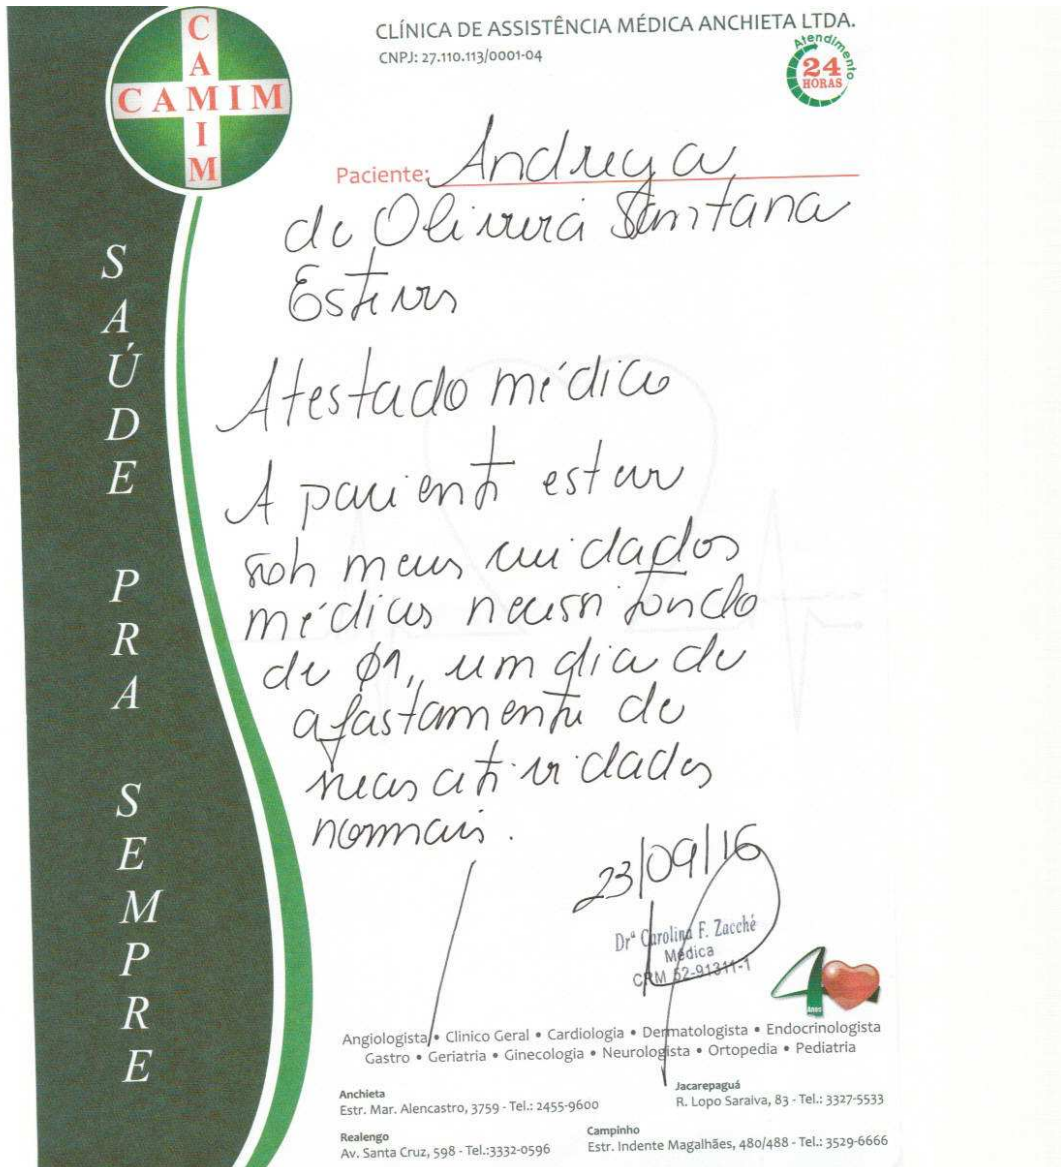 CLÍNICA DE ASSISTÊNCIA MÉDICA ANCHIETA LTDA.
CNPJ: 27.110.113/0001-04
Atendimento
24
HORAS
CAMIM
CAMIM
SAÚDE PRA SEMPRE
Paciente: Andreya
de Oliveira Santana
Esteves
Atestado médico
A paciente estar
sob meus cuidados
médicos necessitando
de 01, um dia de
afastamento de
suas atividades
normais.
23/09/16
Drª Carolina F. Zacché
Médica
CRM 52-91311-1
40
Anos
Angiologista • Clinico Geral • Cardiologia • Dermatologista • Endocrinologista
Gastro • Geriatria • Ginecologia • Neurologista • Ortopedia • Pediatria
Anchieta
Estr. Mar. Alencastro, 3759 - Tel.: 2455-9600
Jacarepaguá
R. Lopo Saraiva, 83 - Tel.: 3327-5533
Realengo
Av. Santa Cruz, 598 - Tel.:3332-0596
Campinho
Estr. Indente Magalhães, 480/488 - Tel.: 3529-6666